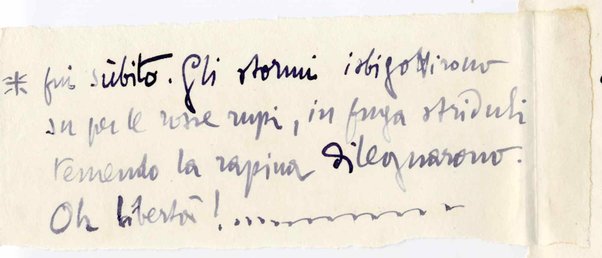 * fui sùbito. Gli stormi isbigottirono
su per le rosse rupi, in fuga striduli
temendo la rapina dileguarono.
Oh libertà! ..............